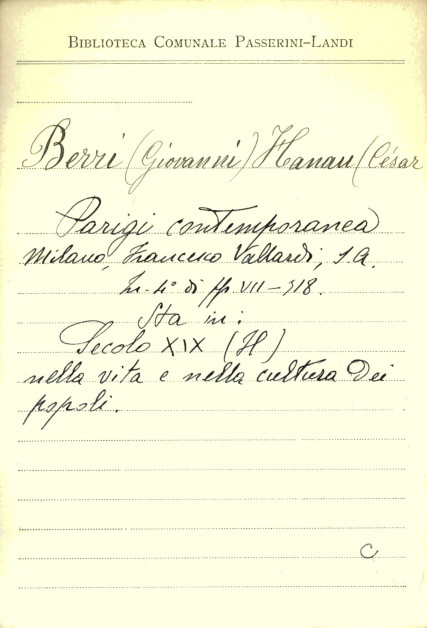 BIBLIOTECA COMUNALE PASSERINI-LANDI
Berri (Giovanni) Hanau (César
Parigi contemporanea
Milano, Francesco Vallardi, S.A.
In-4° di pp VII-318.
Sta in:
Secolo XIX (Il)
nella vita e nella cultura dei
popoli.
C